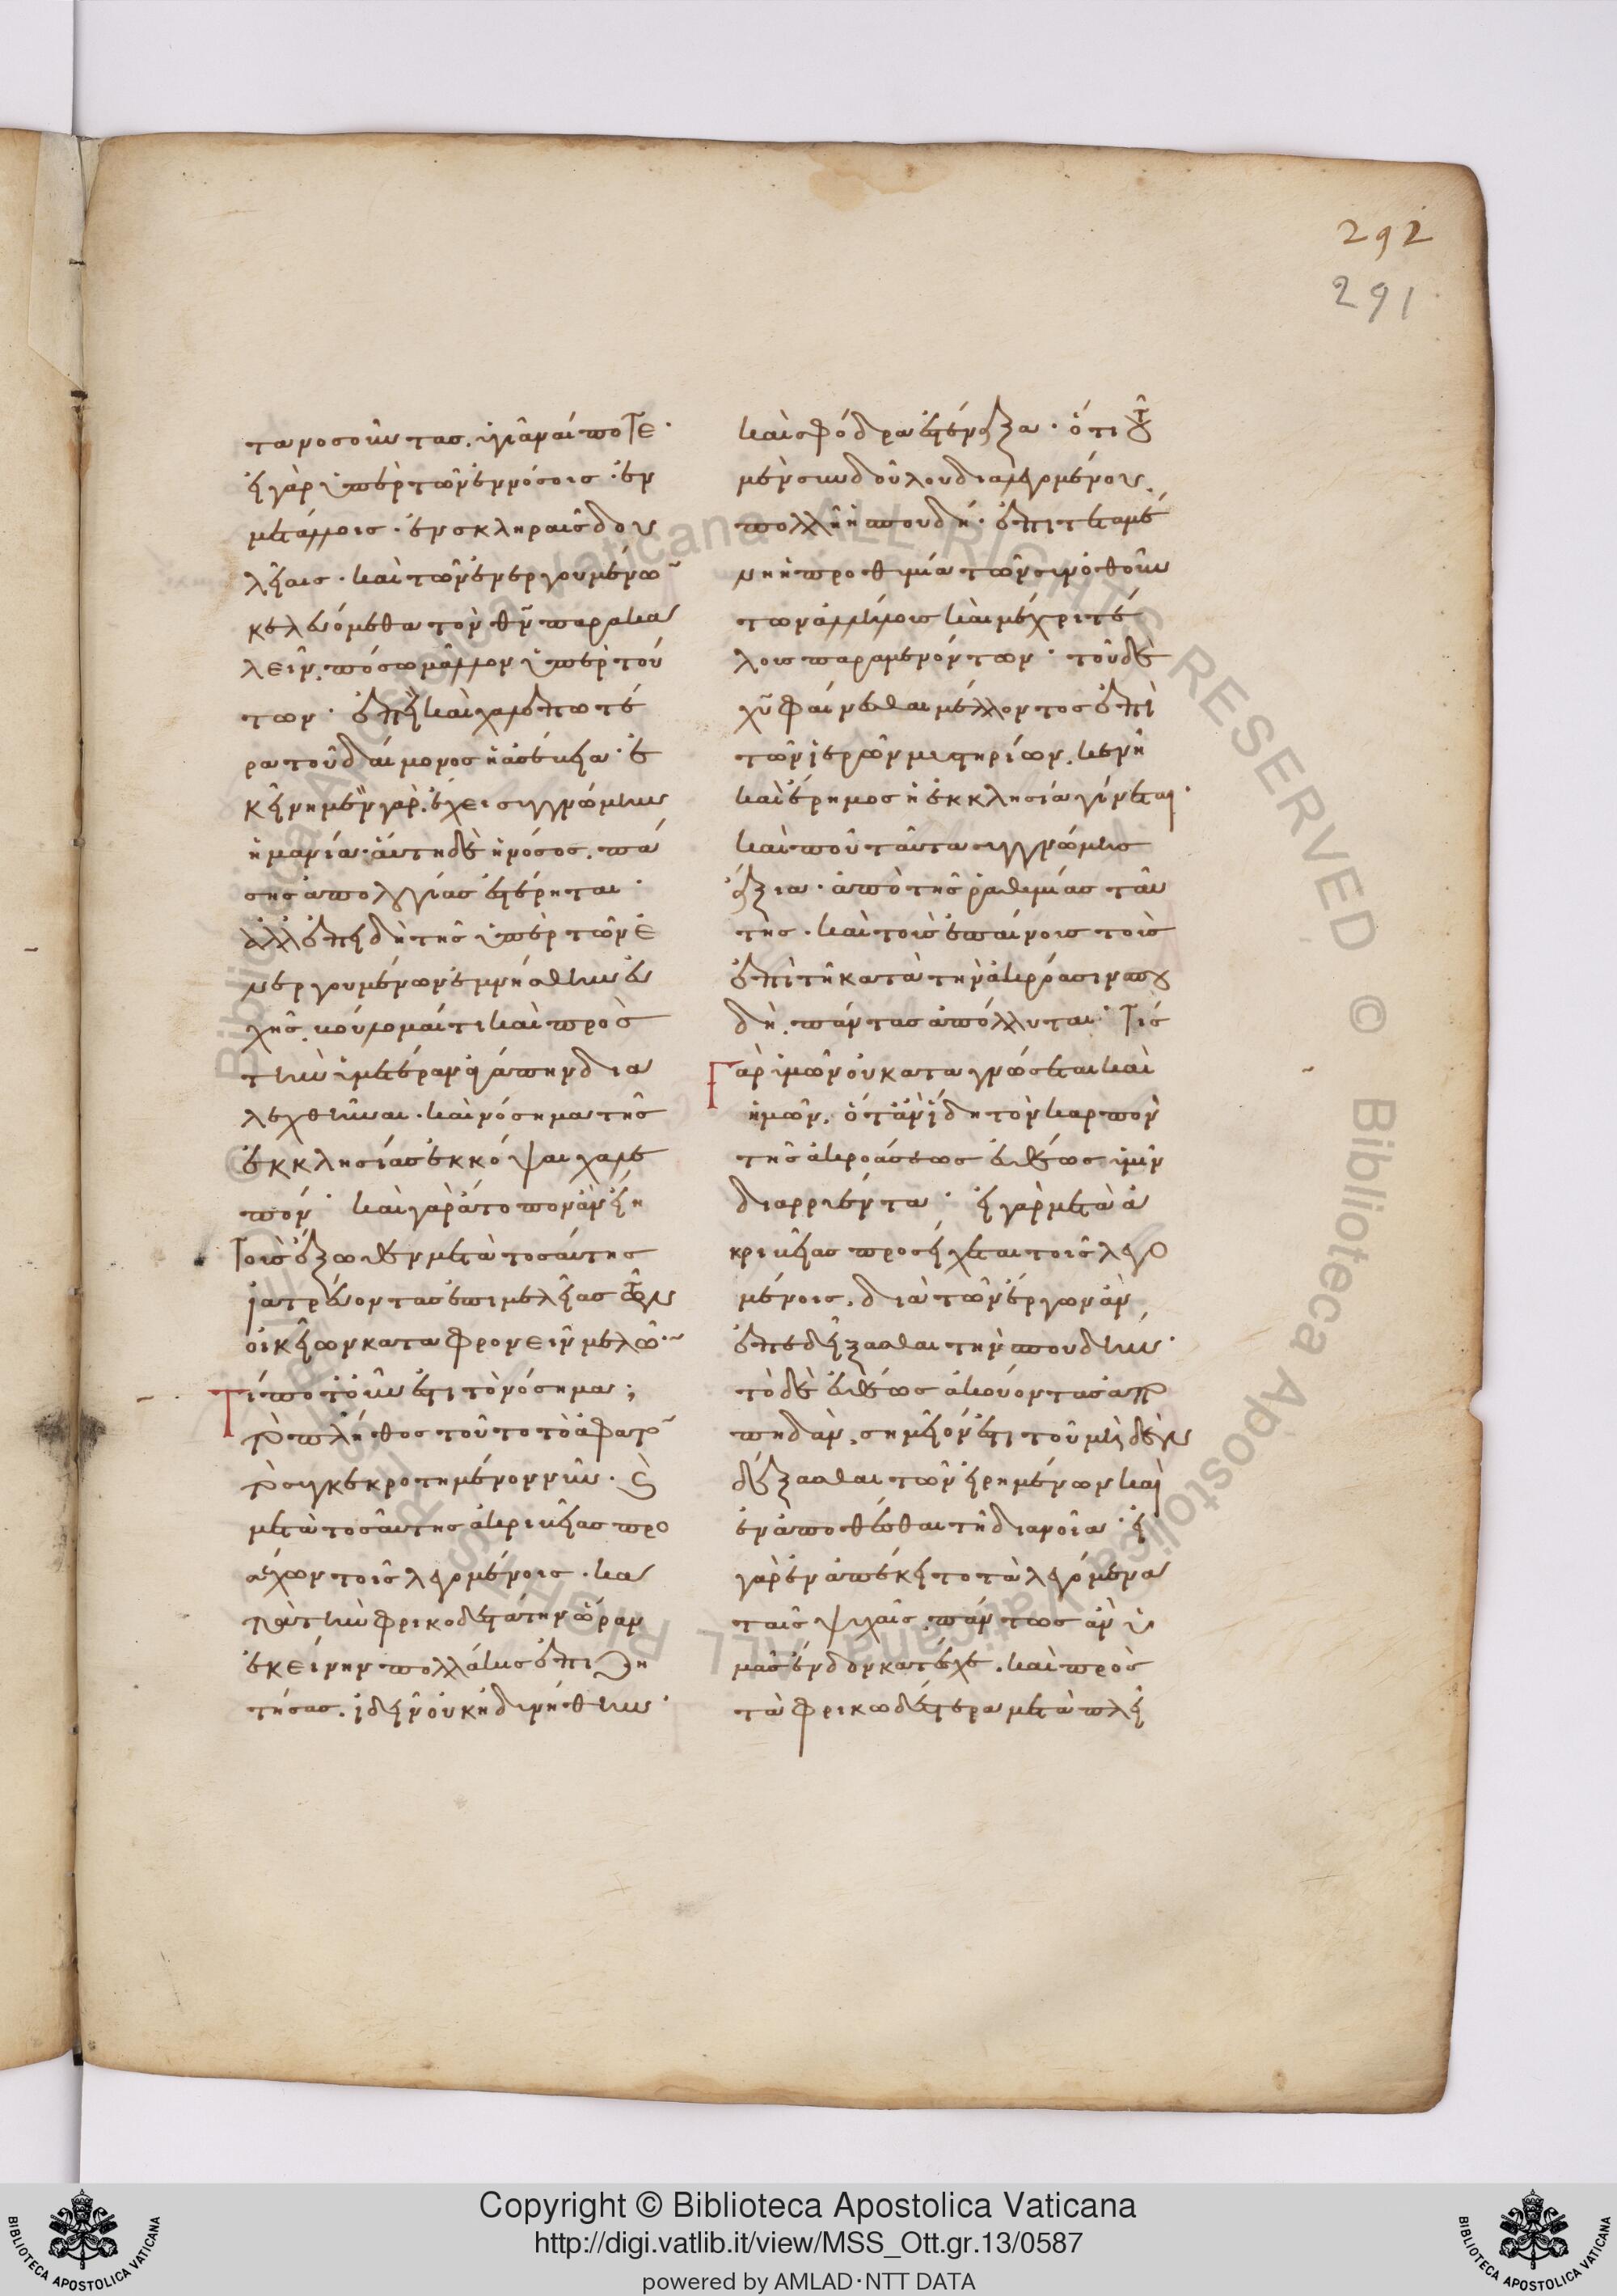 τα νοσοῦντας. ὑγιᾶναί ποτε·
εἰ γὰρ ὑπὲρ τῶν ἐν νόσοις· ἐν
μετάλλοις· ἐν σκληραῖς δου
λείαις· καὶ τῶν ἐνεργουμένω̄
κελευόμεθα τὸν θν̄ παρακα
λεῖν, πόσω μᾶλλον ὑπὲρ τού
των· ἐπεὶ καὶ χαλεπωτέ
ρα τοῦ δαίμονος ἡ ἀσέβεια· ἐ
κείνη μὲν γὰρ. ἔχει συγγνώμην
ἡ μανία· αὕτη δὲ ἡ νόσος. πά
σης ἀπολογίας ἐστέρηται·
ἀλλ ἐπειδὴ τῆς ὑπὲρ τῶν ἐ
νεργουμένων ἐμνήσθην εὐ
χῆς. βούλομαί τι καὶ πρὸς
τὴν ὑμετέραν ἀγάπην δια
λεχθῆναι· καὶ νόσημα τῆς
ἐκκλησίας ἐκκόψαι χαλε
πόν· καὶ γὰρ ἄτοπον ἂν εἴη
τοὺς ἔξωθεν μετὰ τοσαύτης
ἰατρεύοντας ἐπιμελείας τῶν
οἰκείων καταφρονεῖν μελῶ̄·
Τί ποτ οὖν ἐστι τὸ νόσημα;
τὸ πλῆθος τοῦτο τὸ ἄφατο̄
τὸ συγκεκροτημένον νῦν· καὶ
μετὰ τοσαύτης ἀκριβείας προ
σέχων τοῖς λεγομένοις· κα
τὰ τὴν φρικοδεστάτην ὥραν
ἐκείνην πολλάκις ἐπιζη
τήσας. ἰδεῖν οὐκ ἠδυνήθην·
καὶ σφόδρα ἐστέναξα· ὅτι τοῦ
μὲν συνδούλου διαλεγομένου.
πολλὴ ἡ σπουδή· ἐπιτεταμέ
νη ἡ προθυμία τῶν συνωθούν
των ἀλλήλους καὶ μέχρι τέ
λους παραμενόντων· τοῦ δὲ
χῦ φαίνεσθαι μέλλοντος ἐπὶ
τῶν ἱερῶν μυστηρίων. κενὴ
καὶ ἔρημος ἡ ἐκκλησία γίνεται·
καὶ ποῦ ταῦτα συγγνώμης
ἄξια· ἀπὸ τῆς ῥαθυμίας ταύ
της· καὶ τοὺς ἐπαίνους τοὺς
ἐπὶ τῆ κατὰ τὴν ἀκρόασιν σπου
δῆ. πάντας ἀπόλλυται· τίς
Γὰρ ὑμῶν οὐ καταγνώσεται καὶ
ἡμῶν. ὅταν ἴδη τὸν καρπὸν
τῆς ἀκροάσεως εὐθέως ὑμῖν
διαρρυέντα· εἰ γὰρ μετὰ ἀ
κριβείας προσείχεται τοῖς λεγο
μένοις. διὰ τῶν ἔργων ἂν
ἐπεδείξασθαι τὴν σπουδήν·
τὸ δὲ εὐθέως ἀκούοντας ἀπο
πηδᾶν. σημεῖόν ἐστι τοῦ μηδὲν
δέξασθαι τῶν εἰρημένων καὶ
ἐναποθέσθαι τῆ διανοία· εἰ
γὰρ ἐναπέκειτο τὰ λεγόμενα
ταῖς ψυχαῖς. πάντως ἂν ὑ
μᾶς ἔνδον κατέσχε. καὶ πρὸς
τὰ φρικωδέστερα μετὰ πλεί
292
291
© Biblioteca Apostolica Vaticana ALL RIGHTS RESERVED
Copyright © Biblioteca Apostolica Vaticana
http://digi.vatlib.it/view/MSS_Ott.gr.13/0587
powered by AMLAD·NTT DATA
BIBLIOTECA APOSTOLICA VATICANA
BIBLIOTECA APOSTOLICA VATICANA